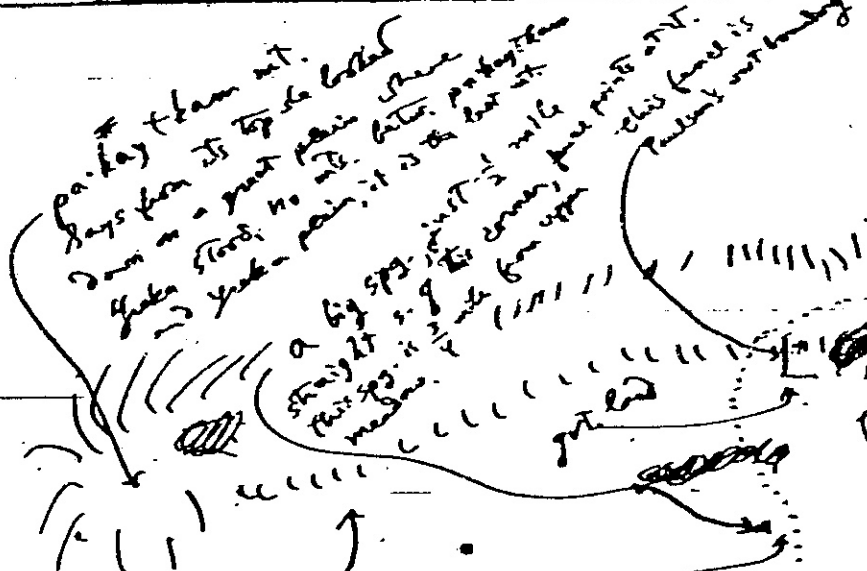 pa·kay tkam mt.
Says from its top she looked
down on a great plain where
Yreka stood, no mts. betw. pakaytkam
and Yreka plain, it is the last mt.
a big spg. just ½ mile
straight s. of this corner, fence points at it.
this spg. is ¾ mile from upper
meadow.
this fence is
Paulsen's west boundary
gvt. land